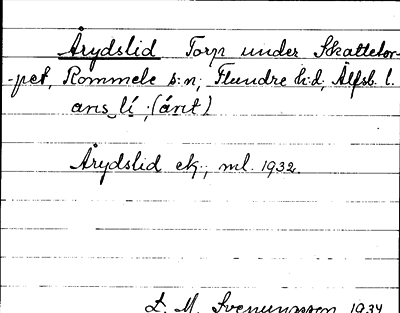 Årydslid Torp under Skattetor-
-pet, Rommele s:n, Flundre h:d, Älfsb. l.
ans lí ; (ánt)
Årydslid ek., ml. 1932.
L. M. Svenungsson 1934